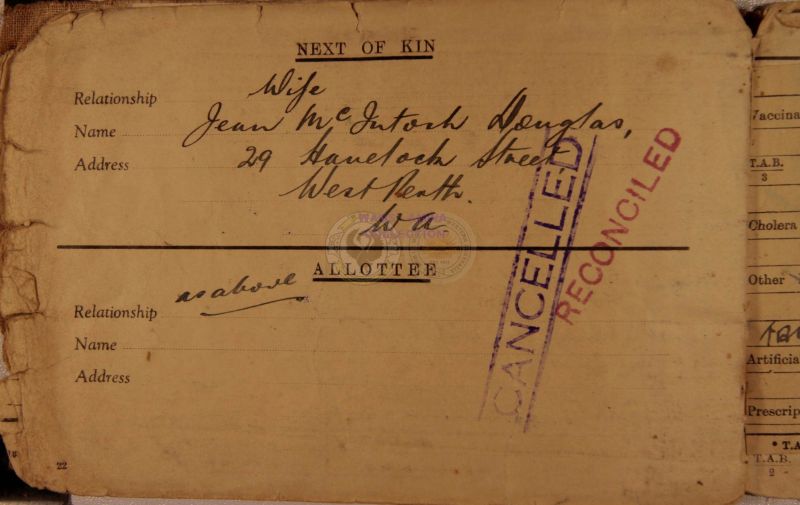 NEXT OF KIN
Relationship Wife
Name Jean McIntosh Douglas,
Address 29 Havelock Street
West Perth.
WA
ALLOTTEE
as above
Relationship
Name
Address
22
CANCELLED
RECONCILED
T.A.B.
3
Cholera
Other
Artificia
Prescrip
• T.A
T.A.B.
2